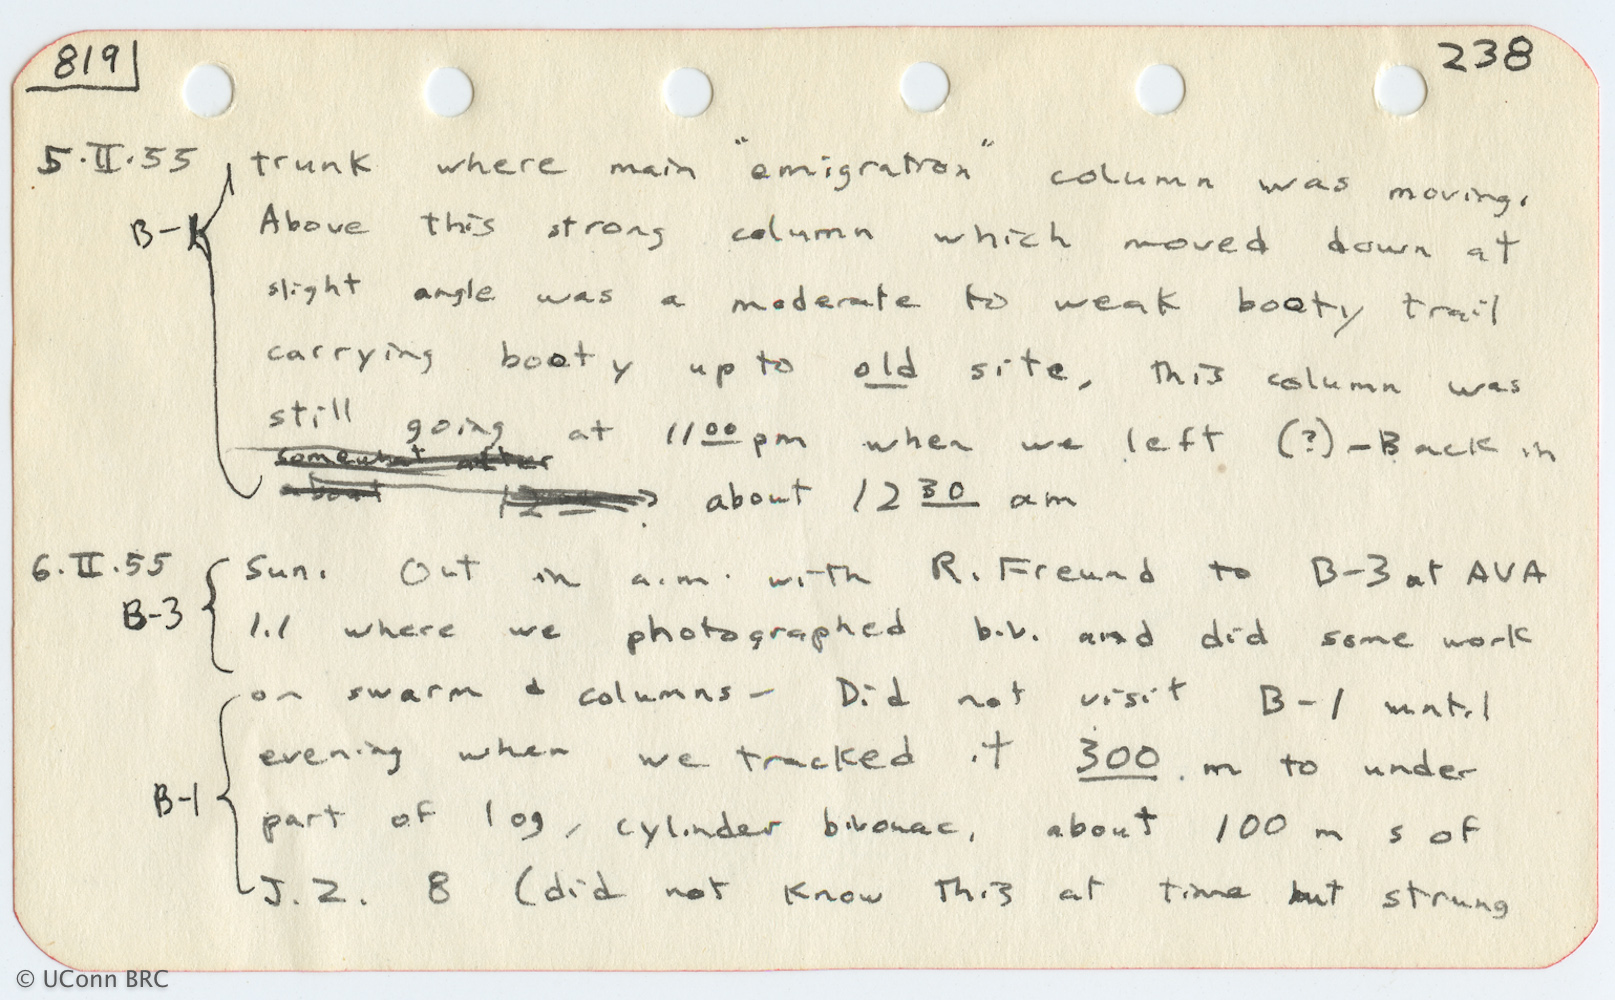 819
238
5.II.55 trunk where main "emigration" column was moving.
B-1 Above this strong column which moved down at
slight angle was a moderate to weak booty trail
carrying booty up to old site, this column was
still going at 11 00 pm when we left (?) - Back in
somewhat after
about 12 about 12 30 am
6.II.55 Sun. Out in a.m. with R. Freund to B-3 at AVA
B-3 1.1 where we photographed b.v. and did some work
on swarm & columns - Did not visit B-1 until
evening when we tracked it 300 m to under
B-1 part of log, cylinder bivouac, about 100 m s of
J.Z. 8 (did not know this at time but strung
© UConn BRC